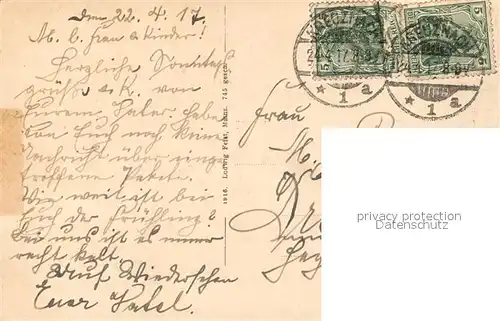 den 22.4.17.
M. l. Frau & Kinder!
Herzliche Sonntags
grüße a. K. von
Eurem Vater. Habe
von Euch noch keine
Nachricht über einge
troffene Pakete.
Wie weit ist bei
Euch der Frühling?
Bei uns ist es immer
recht kalt.
Auf Wiedersehen
Euer Vatel.
1916. Ludwig Feist, Mainz. 745 gesch.
KREUZNACH
* 1 a
KREUZNACH
* 1 a
5
5
Frau
M.
privacy protection
Datenschutz